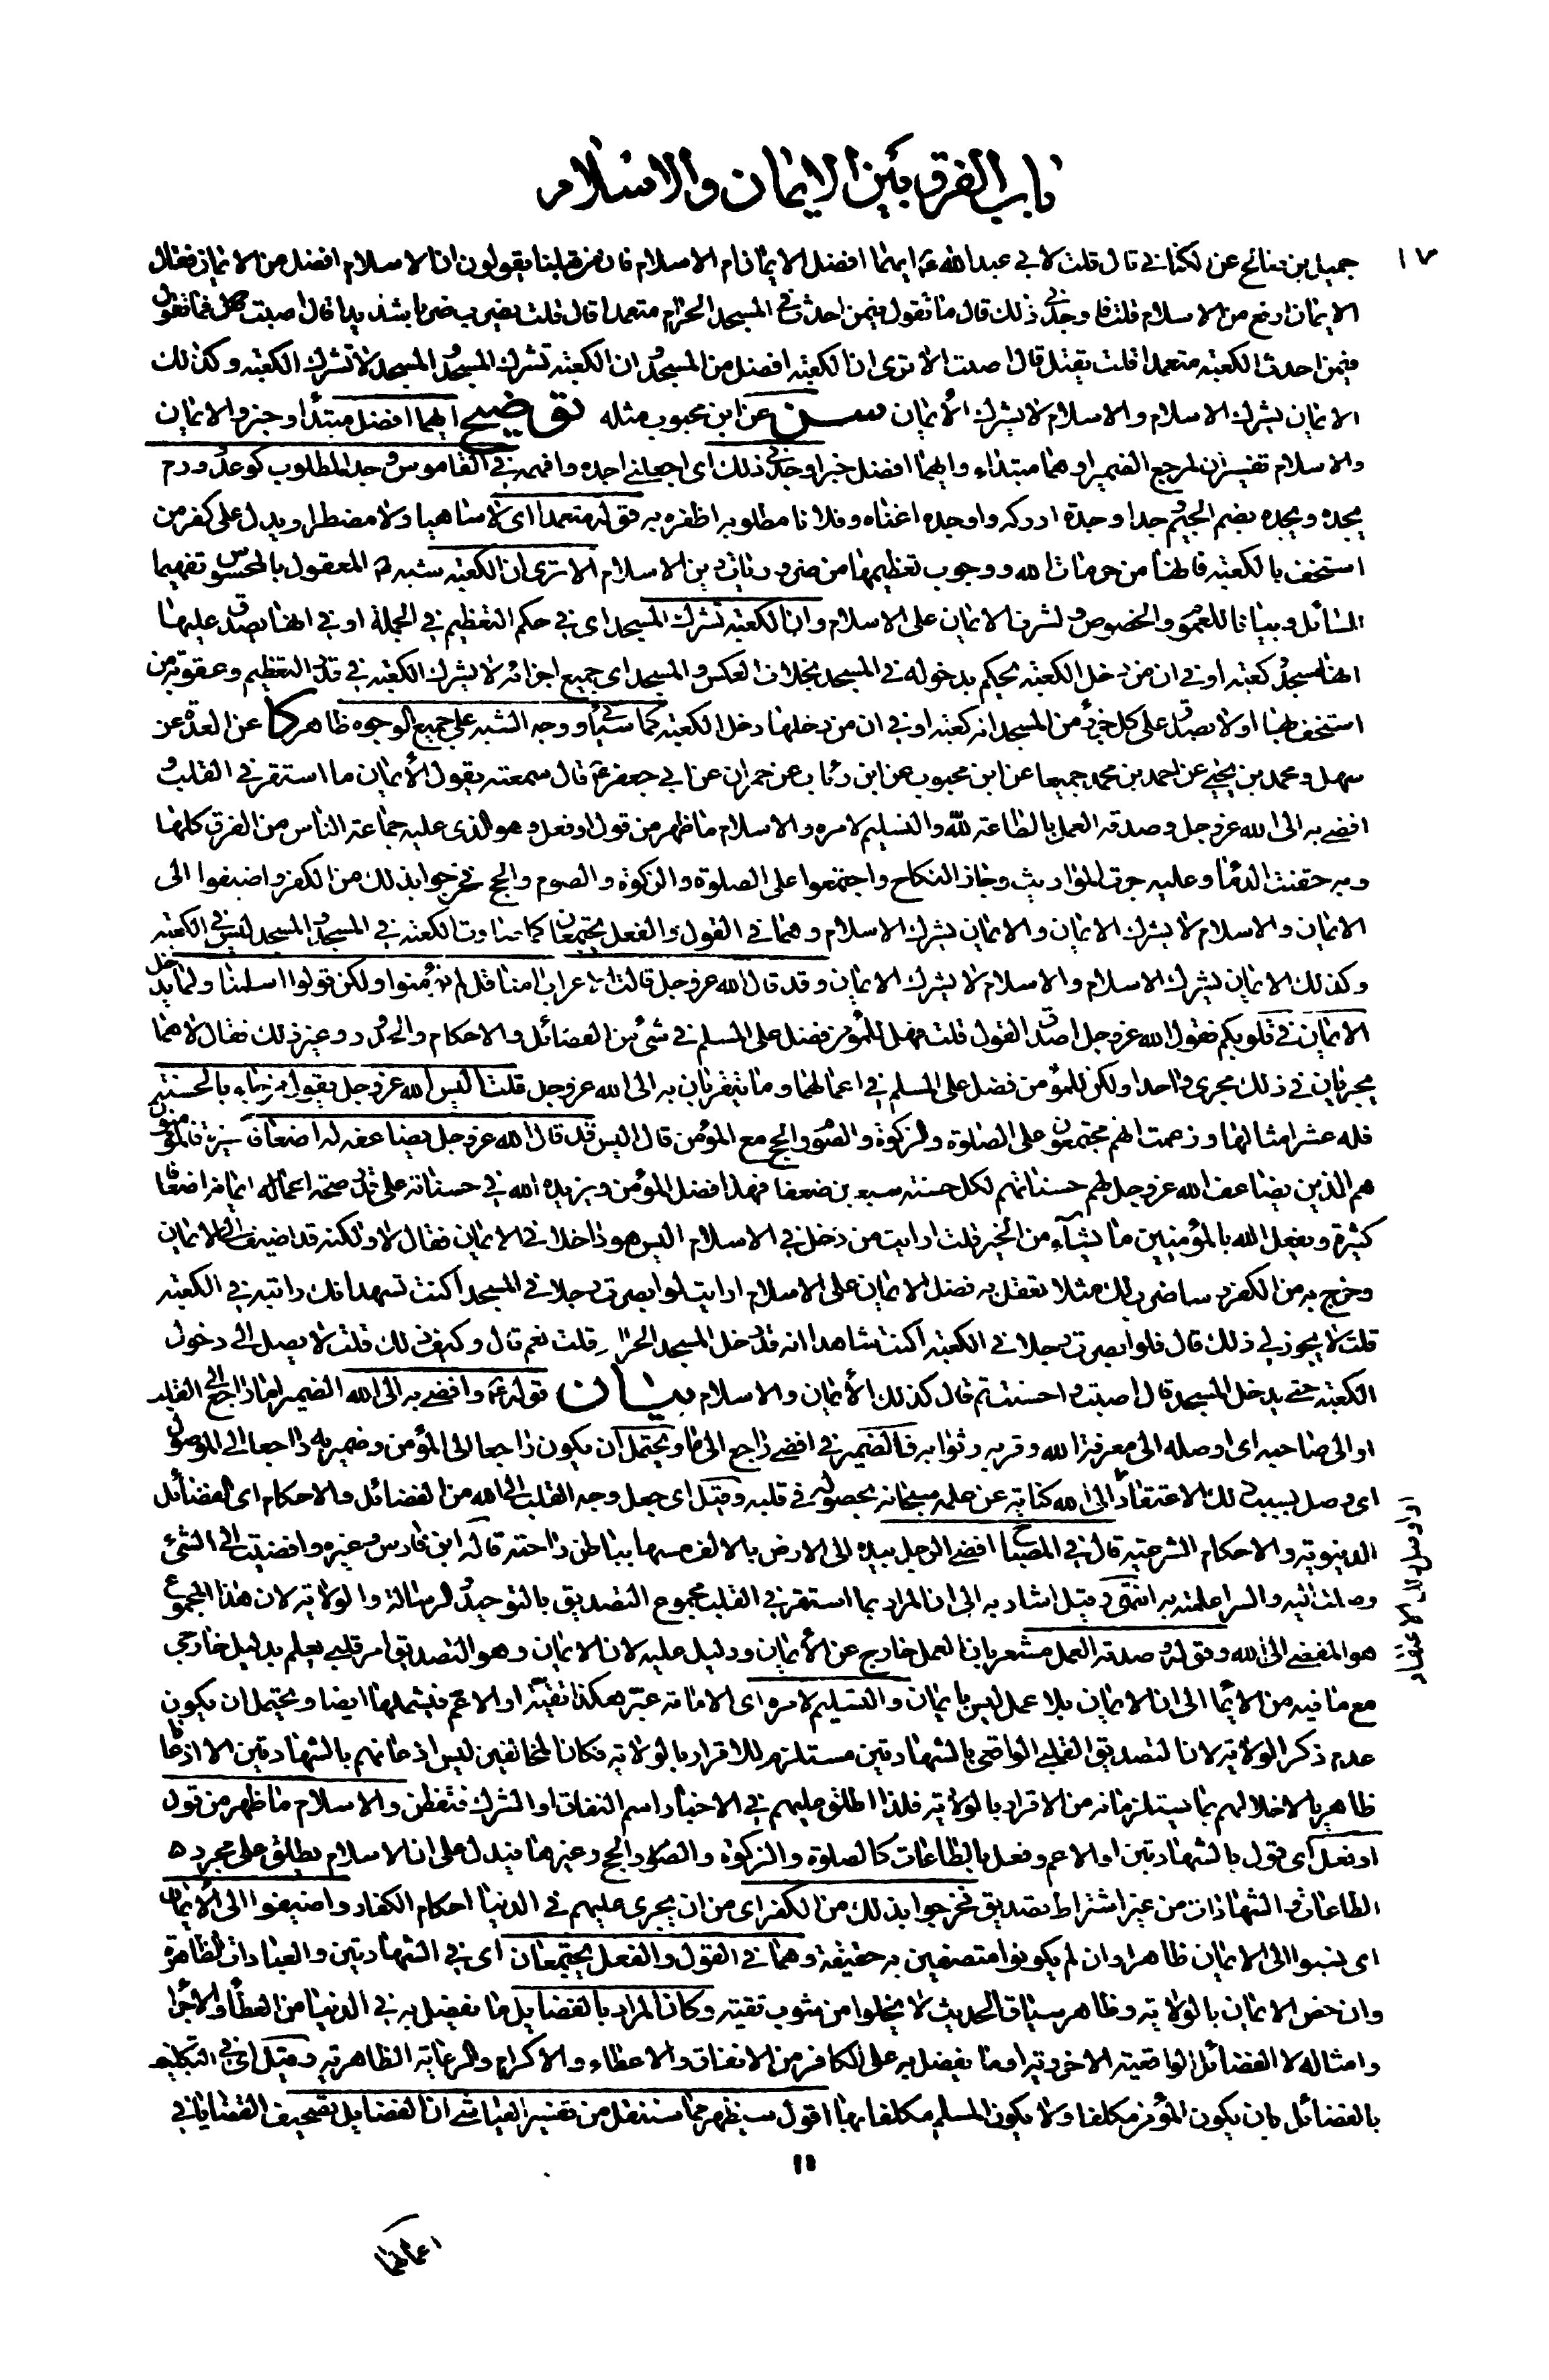 باب الفرق بين الايمان والاسلام
١٧
جميل بن صالح عن الكناني قال قلت لابي عبد الله ع ايهما افضل الايمان ام الاسلام فان من قبلنا يقولون ان الاسلام افضل من الايمان فقال
الايمان ارفع من الاسلام قلت فاوجدني ذلك قال ما تقول فيمن احدث في المسجد الحرام متعمدا قال قلت يضرب ضربا شديدا قال اصبت قال فما تقول
فيمن احدث الكعبة متعمدا قلت يقتل قال اصبت الا ترى ان الكعبة افضل من المسجد وان الكعبة تشرك المسجد والمسجد لا تشرك الكعبة وكذلك
الايمان يشرك الاسلام والاسلام لا يشرك الايمان سن عن ابن محبوب مثله توضيح ايهما افضل مبتدأ وخبر والايمان
والاسلام تفسيران لمرجع الضمير او هما مبتداء وايهما افضل خبر اوجدني ذلك اي اجعلني اجده وافهمه في القاموس وجد المطلوب كوعد وورم
يجده ويجده بضم الجيم وجدا وجدة ادركه واوجده اغناه وفلانا مطلوبه اظفره به قوله متعمدا اي لا ساهيا ولا مضطرا ويدل على كفر من
استخف بالكعبة فانها من حرمات الله ووجوب تعظيمها من ضروريات دين الاسلام الا ترى ان الكعبة شبه ع المعقول بالمحسوس تفهيما
للسائل وبيانا للعموم والخصوص ولشرف الايمان على الاسلام وان الكعبة تشرك المسجد اي في حكم التعظيم في الجملة او في انها يصدق عليها
انها مسجد وكعبة او في ان من دخل الكعبة يحكم بدخوله في المسجد بخلاف العكس والمسجد اي جميع اجزائه لا يشرك الكعبة في قدر التعظيم وعقوبة من
استخف بها او لا يصدق على كل جزء من المسجد انه كعبة او في ان من دخلها دخل الكعبة كما سيأتي ووجه الشبه على جميع الوجوه ظاهر كا عن العدة عن
سهل ومحمد بن يحيى عن احمد بن محمد جميعا عن ابن محبوب عن ابن رئاب عن حمران عن ابي جعفر ع قال سمعته يقول الايمان ما استقر في القلب و
افضى به الى الله عز وجل وصدقه العمل بالطاعة لله والتسليم لامره والاسلام ما ظهر من قول او فعل وهو الذي عليه جماعة الناس من الفرق كلها
وبه حقنت الدماء وعليه جرت المواريث وجاز النكاح واجتمعوا على الصلوة والزكوة والصوم والحج فخرجوا بذلك من الكفر واضيفوا الى
الايمان والاسلام لا يشرك الايمان والايمان يشرك الاسلام وهما في القول والفعل يجتمعان كما صارت الكعبة في المسجد والمسجد ليس في الكعبة
وكذلك الايمان يشرك الاسلام والاسلام لا يشرك الايمان وقد قال الله عز وجل قالت الاعراب امنا قل لم تؤمنوا ولكن قولوا اسلمنا ولما يدخل
الايمان في قلوبكم فقول الله عز وجل اصدق القول قلت فهل للمؤمن فضل على المسلم في شئ من الفضائل والاحكام والحدود وغير ذلك فقال لا هما
يجريان في ذلك مجرى واحدا ولكن للمؤمن فضل على المسلم في اعمالهما وما يتقربان به الى الله عز وجل قلت اليس الله عز وجل يقول من جاء بالحسنة
فله عشر امثالها وزعمت انهم مجتمعون على الصلوة والزكوة والصوم والحج مع المؤمن قال اليس قد قال الله عز وجل يضاعفه له اضعافا كثيرة فالمؤمنون
هم الذين يضاعف الله عز وجل لهم حسناتهم لكل حسنة سبعين ضعفا فهذا فضل المؤمن ويزيده الله في حسناته على قدر صحة ايمانه اضعافا
كثيرة ويفعل الله بالمؤمنين ما يشآء من الخير قلت ارايت من دخل في الاسلام اليس هو داخلا في الايمان فقال لا ولكنه قد اضيف الى الايمان
وخرج به من الكفر وساضرب لك مثلا تعقل به فضل الايمان على الاسلام ارايت لو ابصرت رجلا في المسجد اكنت تشهد انك رايته في الكعبة
قلت لا يجوز لي ذلك قال فلو ابصرت رجلا في الكعبة اكنت شاهدا انه قد دخل المسجد الحرام قلت نعم قال وكيف ذلك قلت لا يصل الى دخول
الكعبة حتى يدخل المسجد قال اصبت واحسنت ثم قال كذلك الايمان والاسلام بيان قوله ع وافضى به الى الله الضمير اما راجع الى القلب
او الى صاحبه اي اوصله الى معرفة الله وقربه وثوابه فالضمير في افضى راجع الى ما ويحتمل ان يكون راجعا الى المؤمن وضمير به راجعا الى الموصول
اي وصل بسبب ذلك الاعتقاد الى الله كناية عن علمه سبحانه بحصوله في قلبه وقيل اي جعل وجه القلب الى الله من الفضائل والاحكام اي الفضائل
الدنيوية والاحكام الشرعية قال في المصباح افضى الرجل بيده الى الارض بالالف مسها بباطن راحته قاله ابن فارس وغيره وافضيت الى الشئ
وصلت اليه والسر اعلمته به انتهى وقيل اشار به الى ان المراد بما استقر في القلب مجموع التصديق بالتوحيد والرسالة والولاية لان هذا المجموع
هو المفضي الى الله وقوله وصدقه العمل مشعر بان العمل خارج عن الايمان ودليل عليه لان الايمان وهو التصديق امر قلبي يعلم بدليل خارجي
مع ما فيه من الايماء الى ان الايمان بلا عمل ليس بايمان والتسليم لامره اي الامامة عبر هكذا تقية او الاعم فيشملها ايضا ويحتمل ان يكون
عدم ذكر الولاية لان التصديق القلبي الواقعي بالشهادتين مستلزم للاقرار بالولاية فكان المخالفين ليس اذعانهم بالشهادتين الا اذعانا
ظاهريا لاخلالهم بما يستلزمانه من الاقرار بالولاية فلذا اطلق عليهم في الاخبار اسم النفاق او الشرك فتفطن والاسلام ما ظهر من قول
او فعل اي قول بالشهادتين او الاعم وفعل بالطاعات كالصلوة والزكوة والصوم والحج وغيرها فيدل على ان الاسلام يطلق على مجرد
الطاعات والشهادات من غير اشتراط تصديق فخرجوا بذلك من الكفر اي من ان يجري عليهم في الدنيا احكام الكفار واضيفوا الى الايمان
اي نسبوا الى الايمان ظاهرا وان لم يكونوا متصفين به حقيقة وهما في القول والفعل يجتمعان اي في الشهادتين والعبادات الظاهرة
وان خص الايمان بالولاية وظاهر سياق الحديث لا يخلوا من شوب تقية وكان المراد بالفضايل ما يفضل به في الدنيا من العطاء والاجراء
وامثاله لا الفضائل الواقعية الاخروية او ما يفضل به على الكافر من الانفاق والاعطاء والاكرام والرعاية الظاهرية وقيل اي في التكليف
بالفضائل بان يكون المؤمن مكلفا ولا يكون المسلم مكلفا بها اقول سيظهر مما سننقل من تفسير العياشي ان الفضايل تصحيف القضايا في
او اوصل ذلك الاعتقاد
١١
اعمالهما